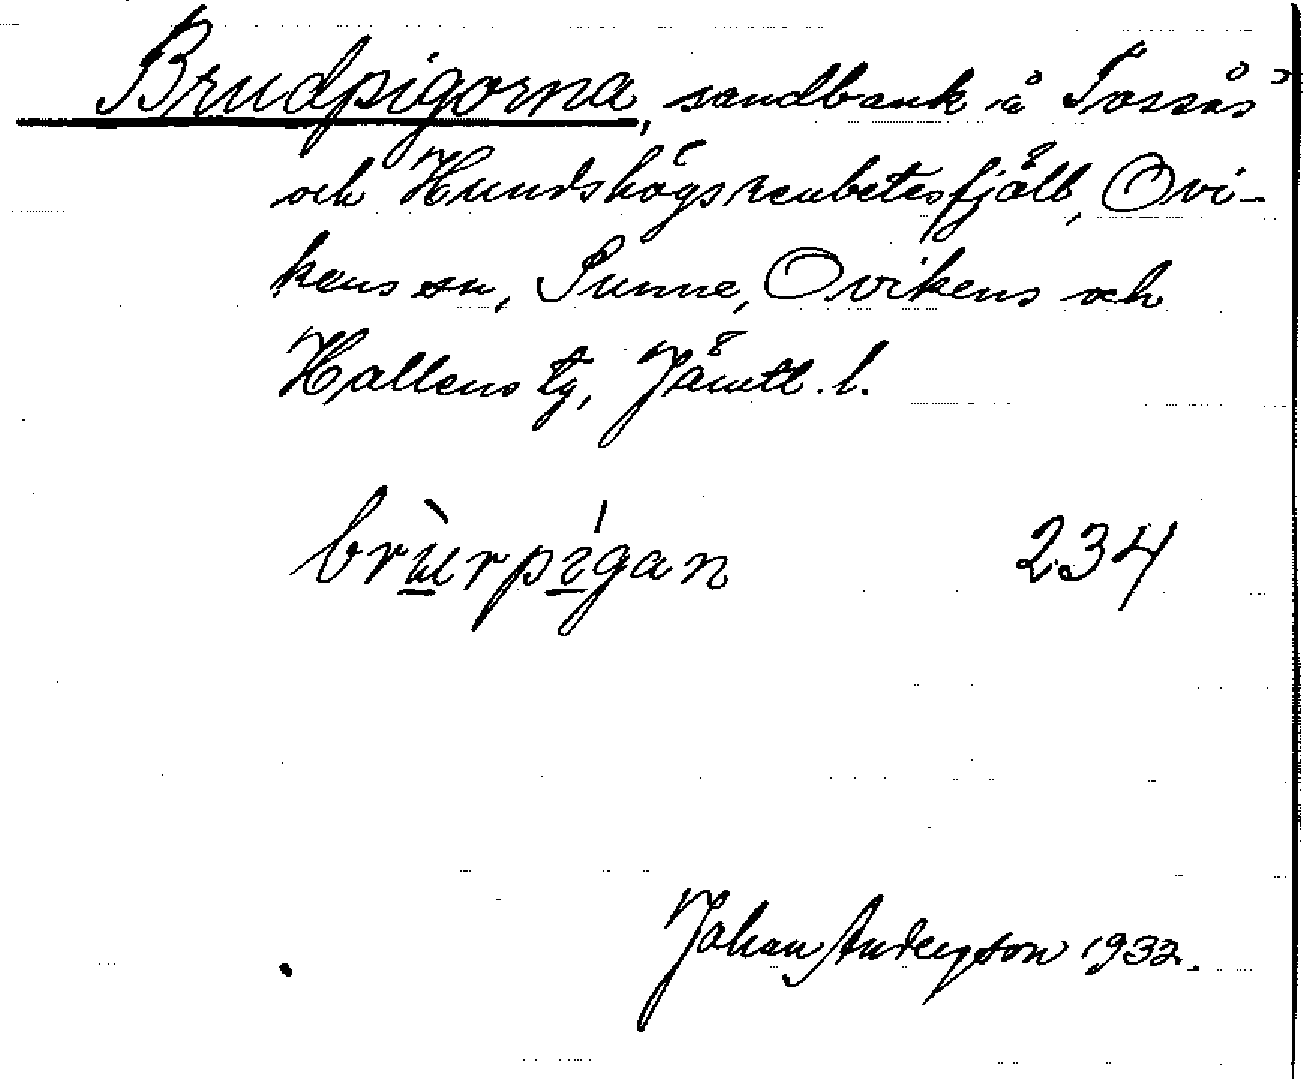 Brudpigorna, sandbank å Tossås-
och Hundshögs renbetesfjäll, Ovi-
kens sn, Sunne, Ovikens och
Hallens tg, Jämtl. l.
brùerpígan 234
Johan Anderson 1932.